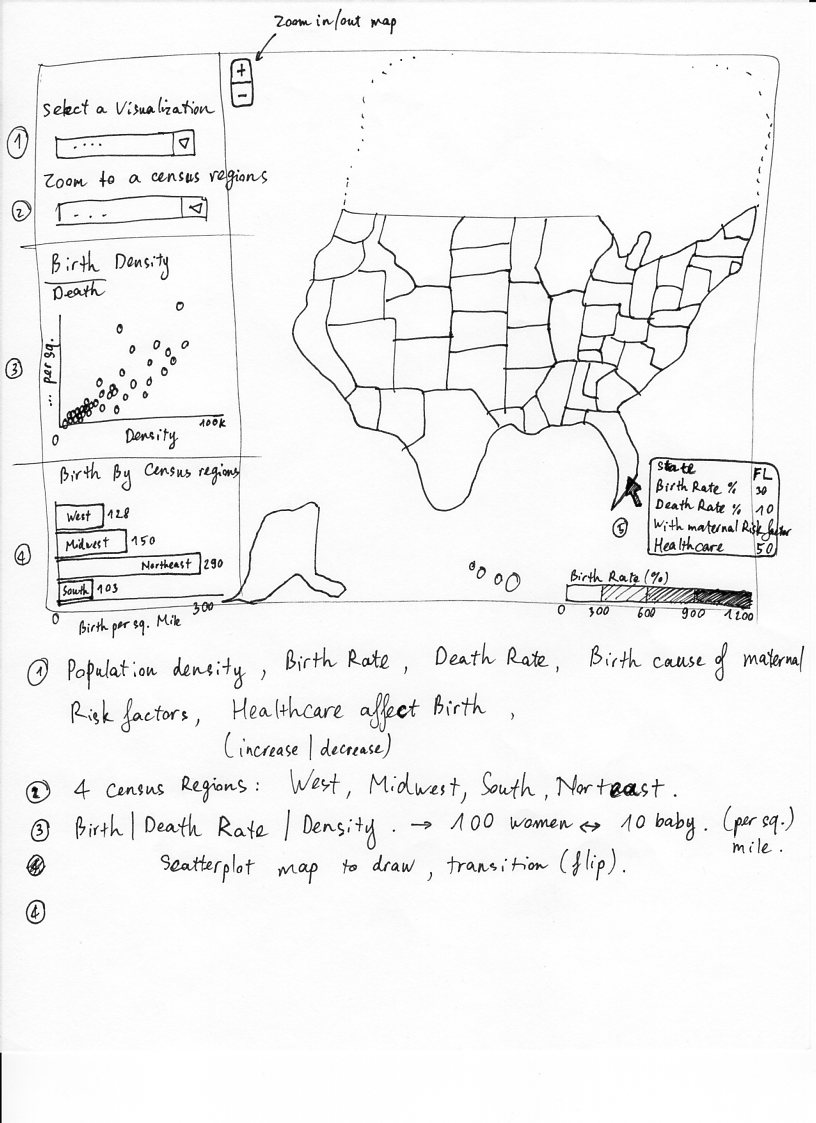 Zoom in/out map
+
-
Select a Visualization
1
....
Zoom to a census regions
2
...
Birth Density
Death
3
... per sq.
0
Density
100k
Birth By Census regions
4
West 128
Midwest 150
Northeast 290
South 103
0
300
Birth per sq. Mile
State FL
Birth Rate % 30
Death Rate % 10
With maternal Risk factor
Healthcare 50
5
Birth Rate (%)
0 300 600 900 1200
1 Population density, Birth Rate, Death Rate, Birth cause of maternal
Risk factors, Healthcare affect Birth,
(increase | decrease)
2 4 Census Regions: West, Midwest, South, Norteast.
3 Birth | Death Rate | Density. → 100 women ↔ 10 baby. (per sq.)
mile.
Scatterplot map to draw, transition (flip).
4